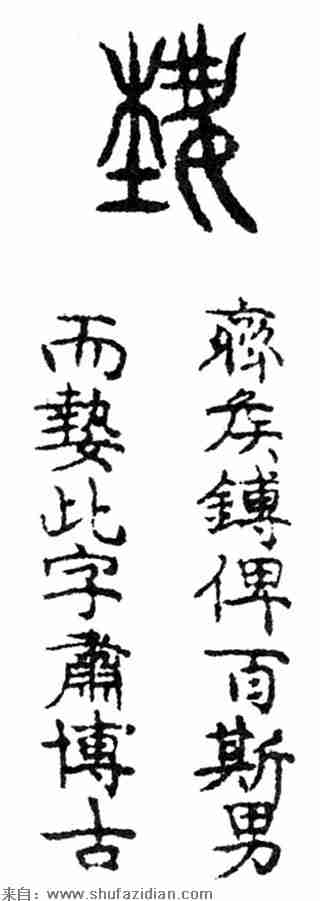 齊矦鎛俾百斯男
而此字肅博古
来自：www.shufazidian.com